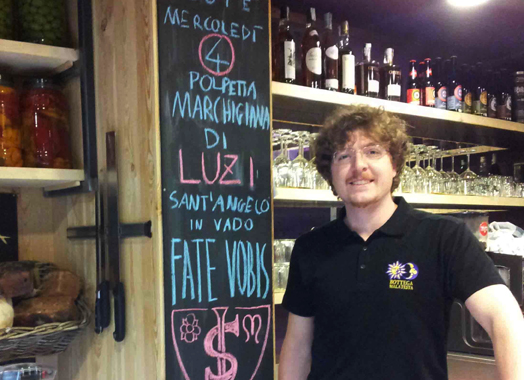 MERCOLEDÌ
4
POLPETTA
MARCHIGIANA
DI
LUZI
SANT'ANGELO
IN VADO
FATE VOBIS
S M
BOTTEGA
MALATESTA